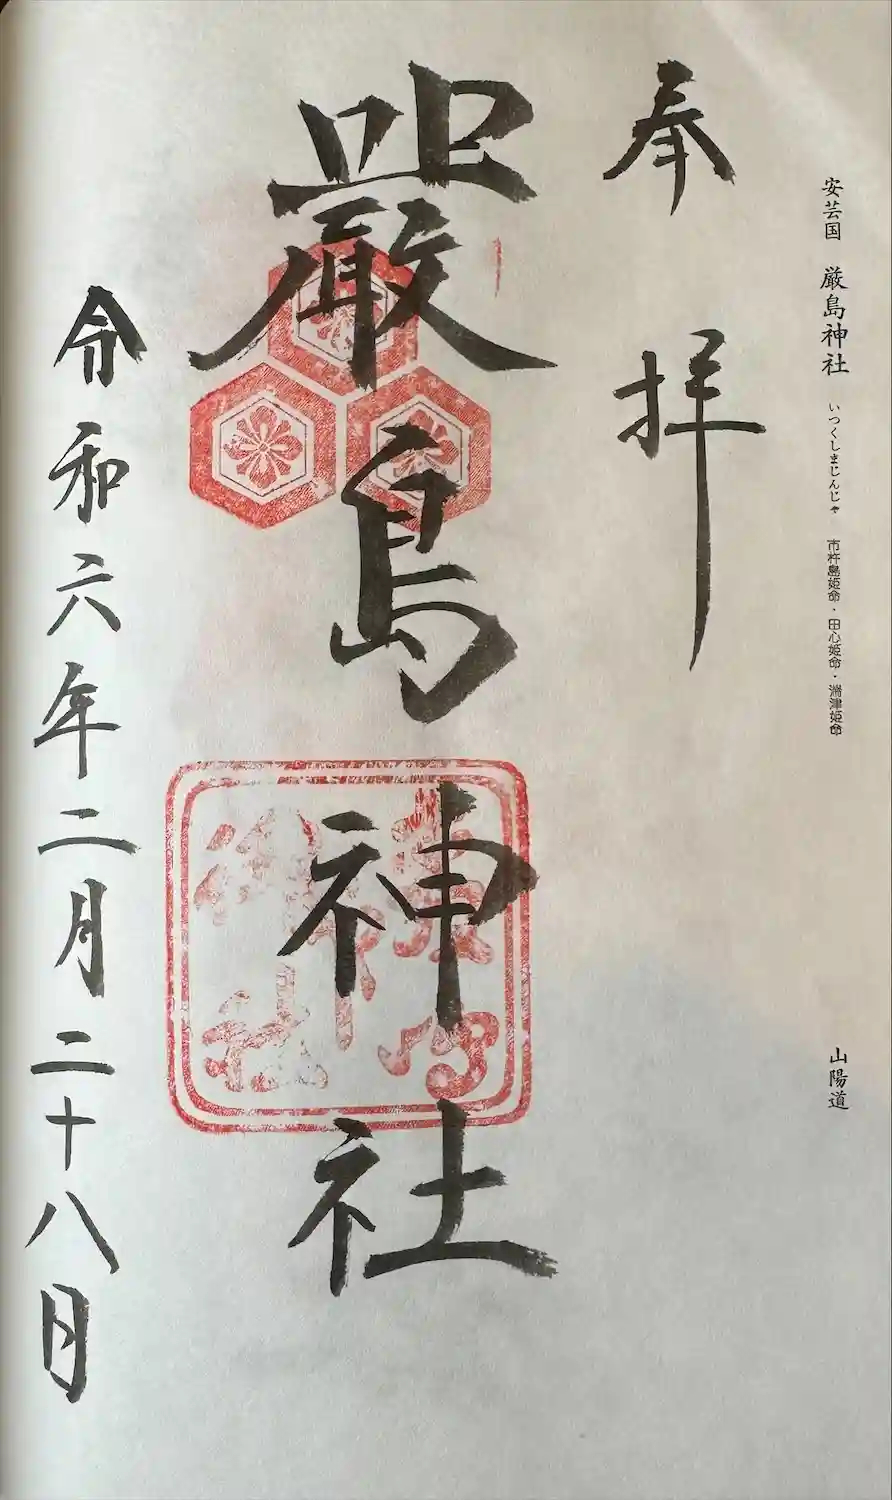 安芸国 厳島神社 いつくしまじんじゃ 市杵島姫命・田心姫命・湍津姫命 山陽道
奉拝
嚴島神社
令和六年二月二十八日